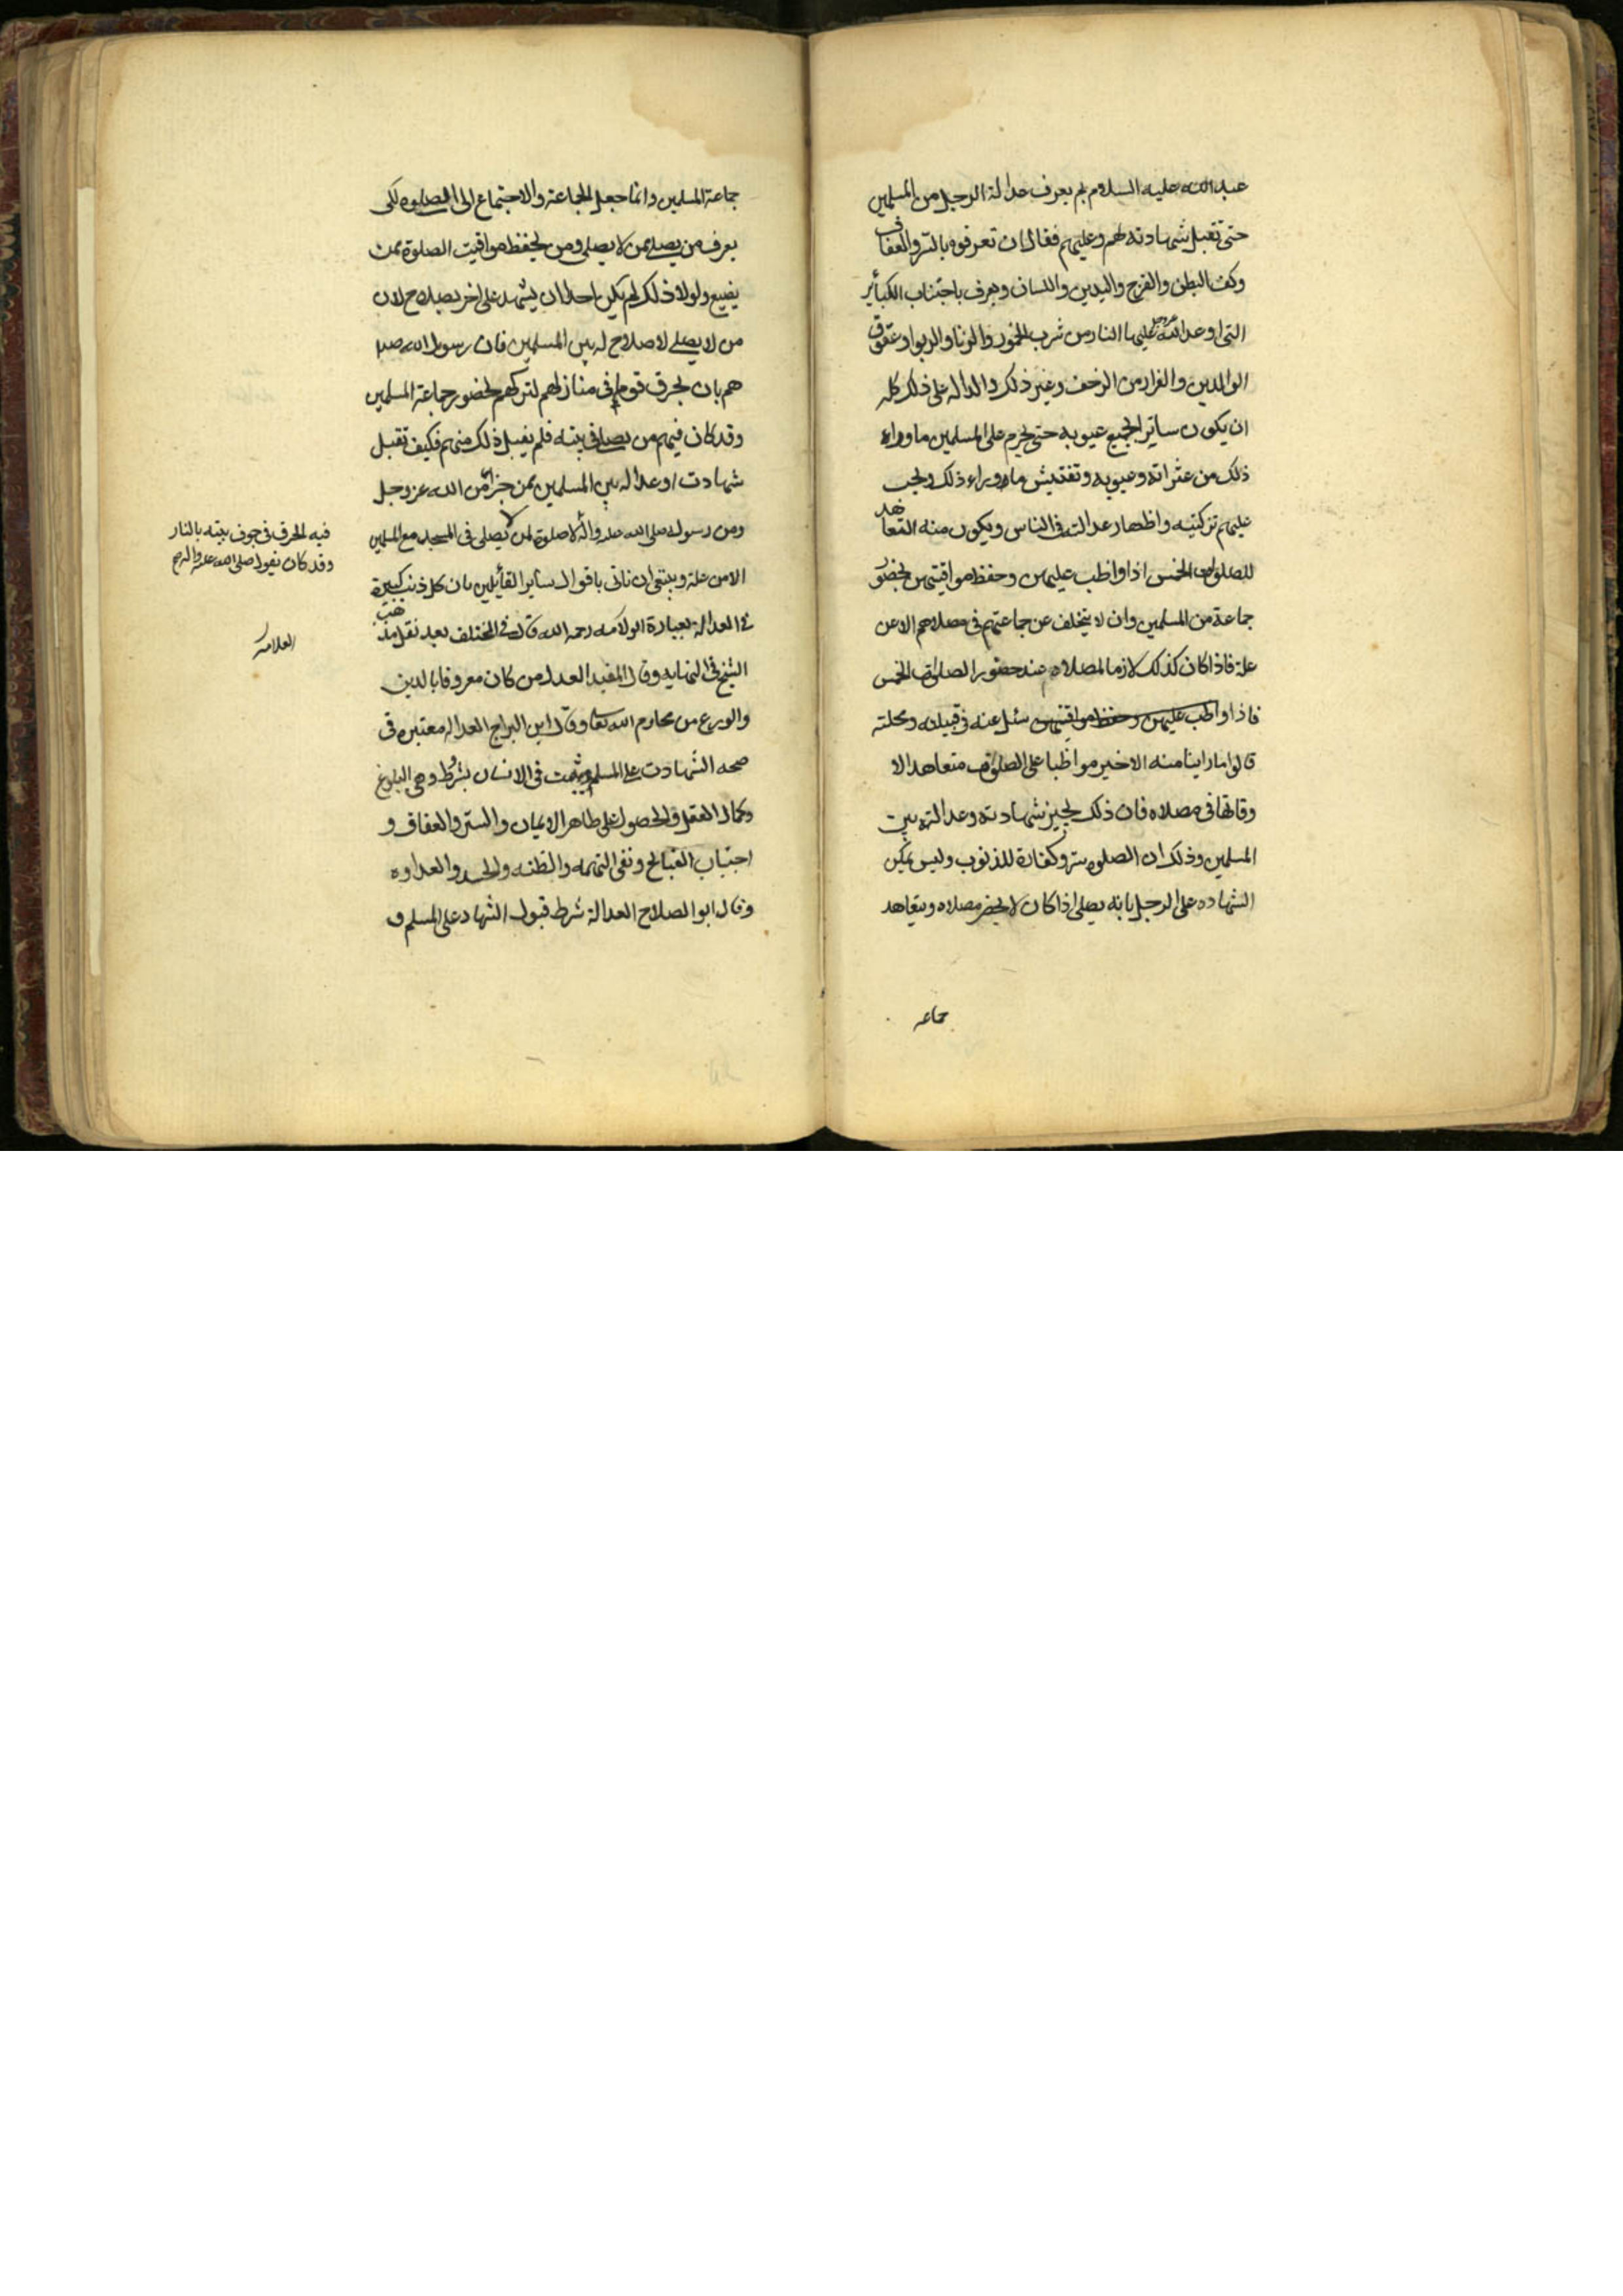 عبد الله عليه السلام بم يعرف عدالة الرجل من المسلمين
حتى تقبل شهادته لهم وعليهم فقال ان تعرفوه بالستر والعفاف
وكف البطن والفرج واليدين واللسان ويعرف باجتناب الكبائر
التى اوعد الله عز وجل عليها النار من شرب الخمور والزنا والربوا وعقوق
الوالدين والفرار من الزحف وغير ذلك والدالة على ذلك كله
ان يكون ساتر الجميع عيوبه حتى يحرم على المسلمين ما وراء
ذلك من عثراته وعيوبه وتفتيش ما وراء ذلك ويجب
عليهم تزكيته واظهار عدالته فى الناس ويكون منه التعاهد
للصلوات الخمس اذا واظب عليهن وحفظ مواقيتهن بحضور
جماعة من المسلمين وان لا يتخلف عن جماعتهم فى مصلاهم الا عن
علة فاذا كان كذلك لازما لمصلاه عند حضور الصلوات الخمس
فاذا واظب عليهن وحفظ مواقيتهن سئل عنه فى قبيلته ومحلته
قالوا ما راينا منه الا خير مواظبا على الصلوات متعاهدا لا
وقاتها فى مصلاه فان ذلك يجيز شهادته وعدالته بين
المسلمين وذلك ان الصلوه ستر وكفارة للذنوب وليس يمكن
الشهاده على الرجل بانه يصلى اذا كان لا يحضر مصلاه ويتعاهد
جماعه
جماعة المسلمين وانما جعل الجماعة والاجتماع الى الصلوه لكى
يعرف من يصلى ممن لا يصلى ومن يحفظ مواقيت الصلوة ممن
يضيع ولولا ذلك لم يكن احدا ان يشهد على اخر بصلاح لان
من لا يصلى لا صلاح له بين المسلمين فان رسول الله صلى
هم بان يحرق قوما فى منازلهم لتركهم لحضور جماعة المسلمين
وقد كان فيهم من يصلى فى بيته فلم يقبل ذلك منهم فكيف تقبل
شهادت او عداله بين المسلمين ممن جرى من الله عز وجل
ومن رسوله صلى الله عليه واله لا صلوة لمن لا يصلى فى المسجد مع المسلمين
الا من علة وينبغى ان ناتى باقوال سائر القائلين بان كل ذنب كبيرة
فى العدالة بعبارة العلامه رحمه الله قال فى المختلف بعد نقل مذهب
الشيخ فى النهايه وقال المفيد العدل من كان معروفا بالدين
والورع من محارم الله تعا وقال ابن البراج العداله معتبره فى
صحه الشهادت على المسلم وثبت فى الانسان بشروط وهى البلوغ
وكمال العقل والحصول على ظاهر الايمان والستر والعفاف و
اجتناب القبائح ونفى التهمه والظنه والحسد والعداوه
وقال ابو الصلاح العدالة شرط قبول الشهاد على المسلم و
فيه الحرق فى جوف بيته بالنار
وقد كان يقول صلى الله عليه واله
العلامه